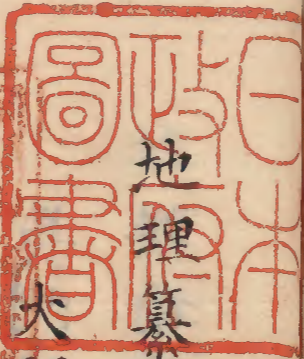 日本
政府
圖書
地理纂
大